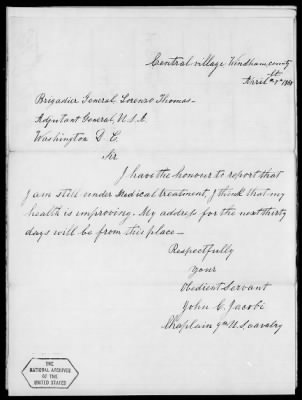 Central village Windham, county
Ct.
April 7th
Brigadier General, Lorenzo Thomas-
Adjutant General, U.S.A.
Washington D. C.
Sir
I have the honour to report that
I am still under Medical treatment, I think that my
health is improving. My address for the next thirty
days will be from this place-
Respectfully
Your
Obedient Servant
John C. Jacobi
Chaplain 9th U.S. cavalry
THE
NATIONAL ARCHIVES
OF THE
UNITED STATES